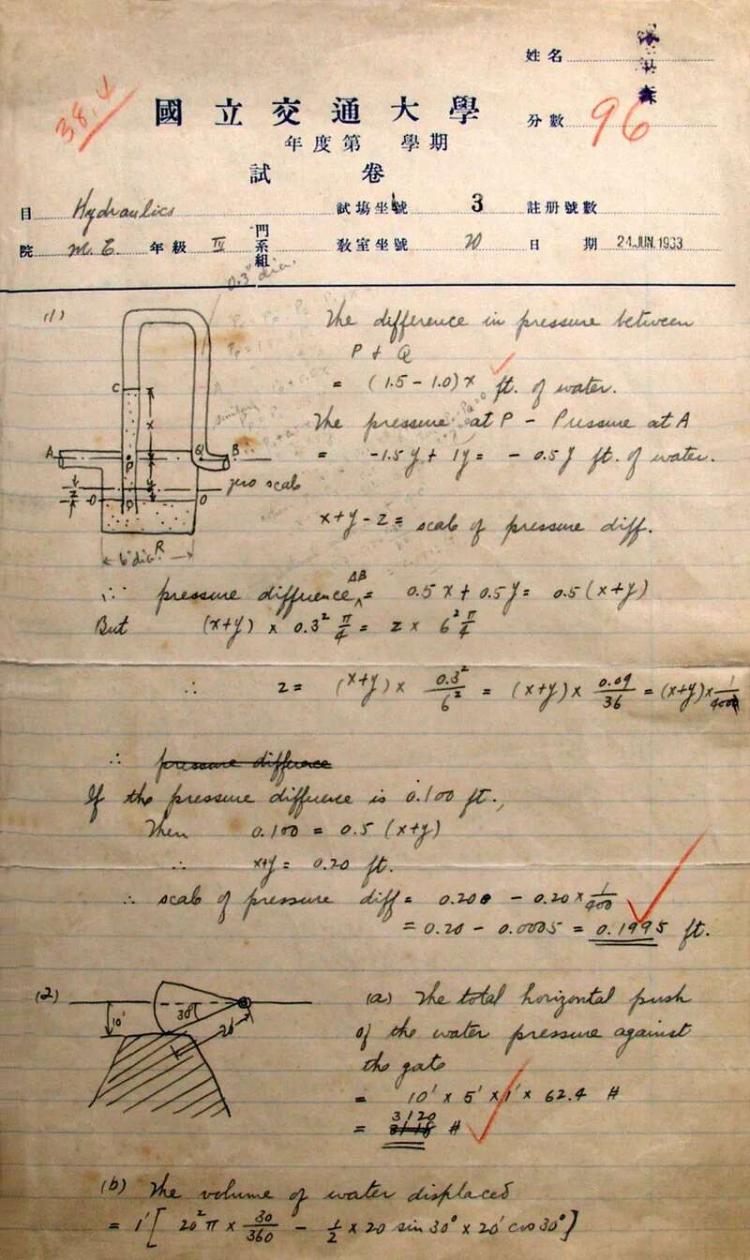 姓名
38.4
國立交通大學
分數 96
年度第 學期
試卷
目 Hydraulics 試場坐號 3 註册號數
院 M. E. 年級 IV 門系組 教室坐號 20 日期 24 JUN. 1933
0.3" dia.
(1)
The difference in pressure between
P & Q
= (1.5 - 1.0) x ft. of water.
C
x
The pressure at P - Pressure at A
A P Q B
= -1.5 y + 1y = - 0.5 y ft. of water.
zero scale
z O O
x+y-z = scale of pressure diff.
6" dia. R
∴ pressure difference AB = 0.5 x + 0.5 y = 0.5 (x+y)
But (x+y) x 0.3² π/4 = z x 6² π/4
∴ z = (x+y) x 0.3²/6² = (x+y) x 0.09/36 = (x+y) x 1/400
∴ pressure difference
If the pressure difference is 0.100 ft.,
Then 0.100 = 0.5 (x+y)
∴ x+y = 0.20 ft.
∴ scale of pressure diff = 0.200 - 0.20 x 1/400
= 0.20 - 0.0005 = 0.1995 ft.
(2)
10' 30° 20'
(a) The total horizontal push
of the water pressure against
the gate
= 10' x 5' x 1' x 62.4 #
= 3120 #
(b) The volume of water displaced
= 1' [ 20² π x 30/360 - 1/2 x 20 sin 30° x 20' cos 30° ]